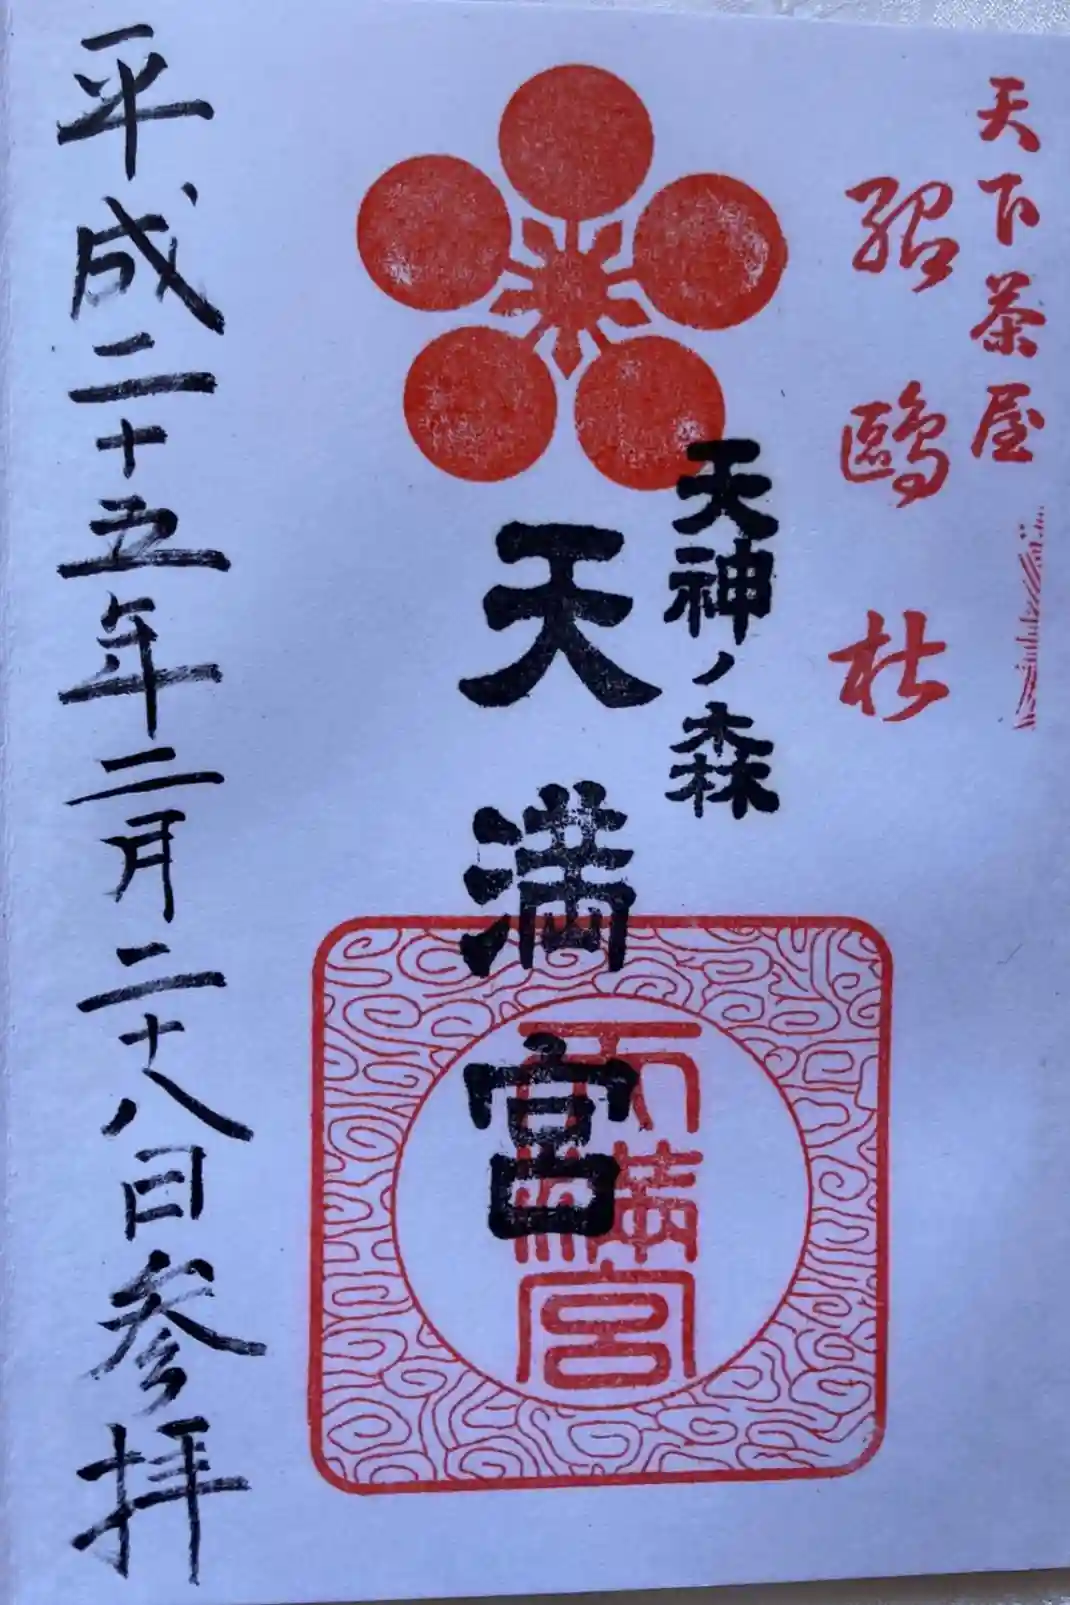 天下茶屋
紹鷗杜
天神ノ森
天満宮
天満宮
平成二十五年二月二十八日参拝